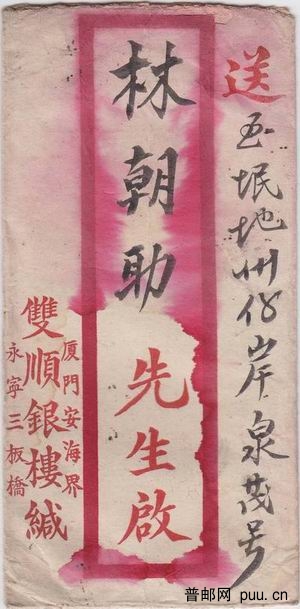 送 垊地州仔岸泉茂号
林朝助先生啟
厦門安海界
雙順銀樓緘
永寧三板橋
普邮网 puu.cn